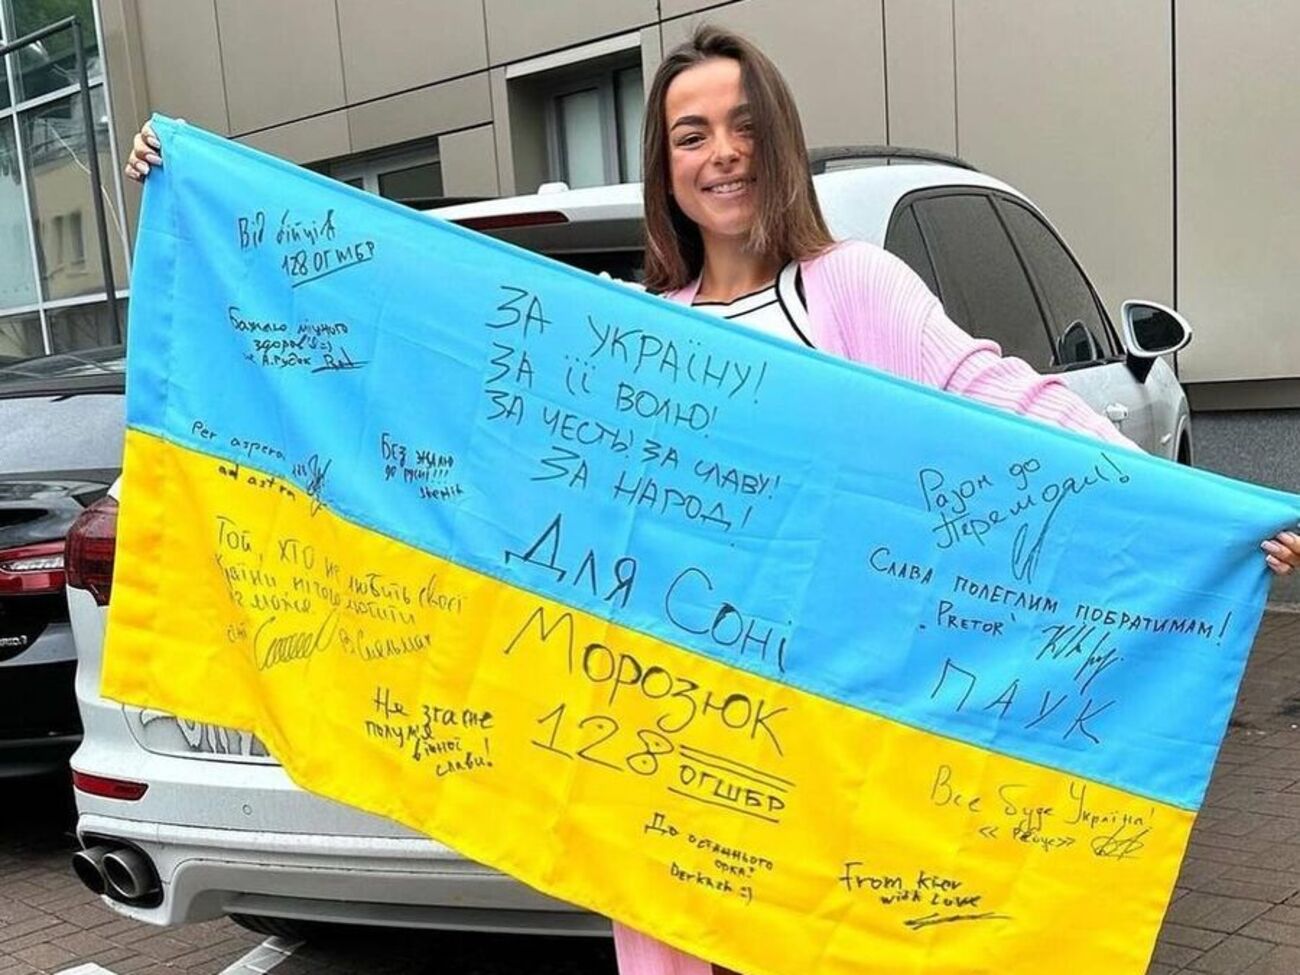 Від бійців
128 ОГШБР
Бажаю міцного
здоров'я =)
А.Рудик
Per aspera
ad astra
Без жалю
до русні!!!
ЗА УКРАЇНУ!
ЗА ЇЇ ВОЛЮ!
ЗА ЧЕСТЬ! ЗА СЛАВУ!
ЗА НАРОД!
Для Соні
Морозюк
128 ОГШБР
До останнього
орка!
Derkach :)
Той, хто не любить своєї
країни нічого любити
не може
Не згасне
полум'я
вічної
слави!
Разом до
Перемоги!
Слава полеглим побратимам!
"Pretor"
ПАУК
Все буде Україна!
From Kiev
with Love